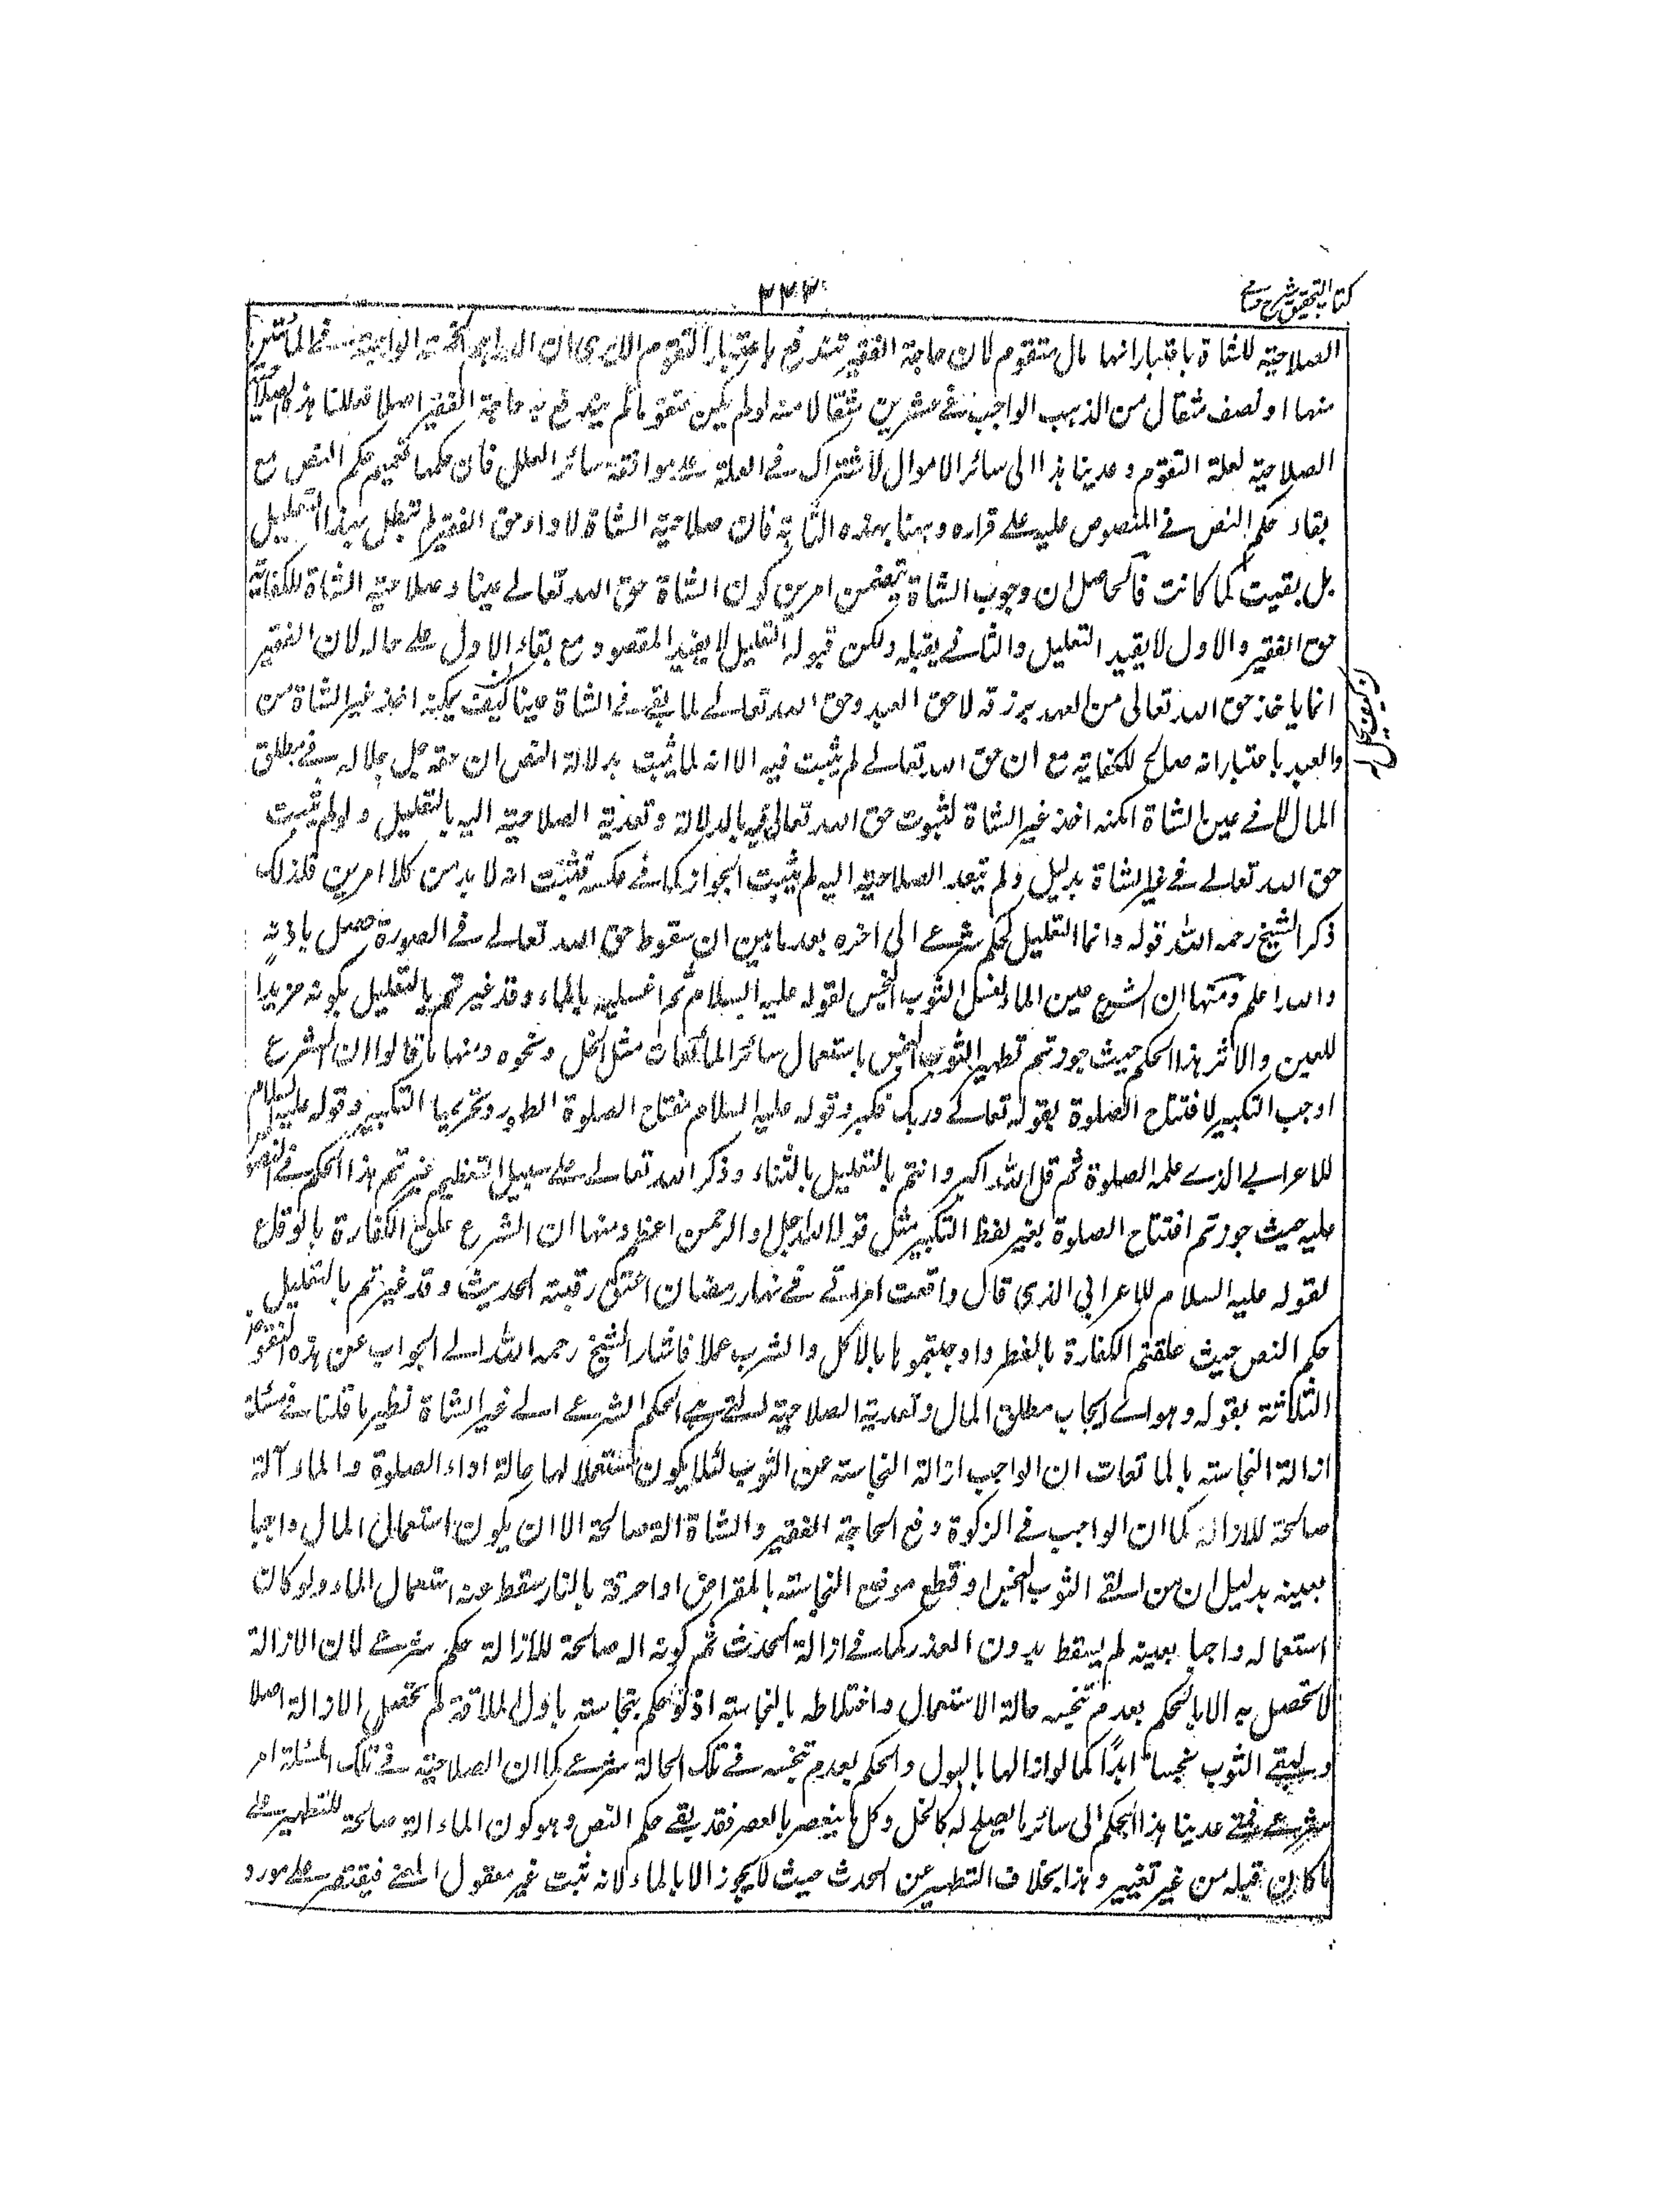 كتاب التحقيق شرح حسامي
٢٣٣
الصلاحية للشاة باعتبار انها مال متقوم لان حاجة الفقير تندفع باعتبار التقوم الا يرى ان الخمسة الواجبة في المأتين
منها او نصف مثقال من الذهب الواجب في عشرين مثقالا منه لو لم يكن متقوما لم يندفع به حاجة الفقير اصلا فعللنا هذه
الصلاحية لعلة التقوم وعدينا هذا الى سائر الاموال للاشتراك في العلة على موافقة سائر العلل فان حكمها تعميم حكم النص مع
بقاء حكم النص في المنصوص عليه على قراره وههنا بهذه المثابة فان صلاحية الشاة لاداء حق الفقير لم تبطل بهذا التعليل
بل بقيت كما كانت فالحاصل ان وجوب الشاة يتضمن امرين كون الشاة حق الله تعالى عينا وصلاحية الشاة لكفاية
حق الفقير والاول لا يقبل التعليل والثاني يقبله ولكن قبوله التعليل لا يفيد المقصود مع بقاء الاول على حاله لان الفقير
انما ياخذ حق الله تعالى من العبد برزقه لا حق العبد وحق الله تعالى لما بقي في الشاة عينا كيف يمكنه اخذ غير الشاة من
العبد باعتبار انه صالح للكفاية مع ان حق الله تعالى لم يثبت فيه الا انه لما ثبت بدلالة النص ان حقه جل جلاله في مطلق
المال لا في عين الشاة امكنه اخذ غير الشاة لثبوت حق الله تعالى فيه بالدلالة وتعدية الصلاحية اليه بالتعليل ولو لم يثبت
حق الله تعالى في غير الشاة بدليل ولم يتعد الصلاحية اليه لم يثبت الجواز كما في عكسه فثبت انه لا بد من كلا امرين فلذلك
ذكر الشيخ رحمه الله قوله وانما التعليل لحكم شرعي الى اخره بعد ما بين ان سقوط حق الله تعالى في الصورة حصل باذنه
والله اعلم ومنها ان الشرع عين الماء لغسل الثوب النجس لقوله عليه السلام ثم اغسليه بالماء وقد غيرتم بالتعليل بكونه مزيلا
للعين والاثر هذا الحكم حيث جوزتم تطهير الثوب النجس باستعمال سائر المائعات مثل الخل ونحوه ومنها ما قالوا ان الشرع
اوجب التكبير لافتتاح الصلوة بقوله تعالى وربك فكبر وقوله عليه السلام مفتاح الصلوة الطهور وتحريمها التكبير وقوله عليه السلام
للاعرابي الذي علمه الصلوة ثم قل الله اكبر وانتم بالتعليل بالثناء وذكر الله تعالى على سبيل التعظيم غيرتم هذا الحكم في المنصوص
عليه حيث جوزتم افتتاح الصلوة بغير لفظ التكبير مثل قوله الله اجل او الرحمن اعظم ومنها ان الشرع علق الكفارة بالوقاع
لقوله عليه السلام للاعرابي الذي قال واقعت امرأتي في نهار رمضان اعتق رقبته الحديث وقد غيرتم بالتعليل
حكم النص حيث علقتم الكفارة بالفطر واوجبتموها بالاكل والشرب عملا فاشار الشيخ رحمه الله الى الجواب عن هذه النقوض
الثلاثة بقوله وهو اي ايجاب مطلق المال وتعدية الصلاحية التي هي الحكم الشرعي الى غير الشاة نظير ما قلنا في مسئلة
ازالة النجاسة بالمائعات ان الواجب ازالة النجاسة عن الثوب لئلا يكون مستعملا لها حالة اداء الصلوة والماء آلة
صالحة للازالة كما ان الواجب في الزكوة دفع الحاجة الفقير والشاة الة صالحة الا ان يكون استعمال المال واجبا
بعينه بدليل ان من القى الثوب النجس او قطع موضع النجاسة بالمقراض او احرقه بالنار سقط عنه استعمال الماء ولو كان
استعماله واجبا بعينه لم يسقط بدون العذر كما في ازالة الحدث ثم كونه الة صالحة للازالة حكم شرعي لان الازالة
لا تحصل به الا بالحكم بعدم تنجسه حالة الاستعمال واختلاطه بالنجاسة اذ لو حكم بنجاسته باول الملاقة لم تحصل الازالة اصلا
وبقي الثوب نجسا ابدا كما لو ازالها بالبول والحكم بعدم تنجسه في تلك الحالة شرعي كما ان الصلاحية في تلك المسئلة امر
شرعي فمتى عدينا هذا الحكم الى سائر ما يصلح له كالخل وكل ما ينعصر بالعصر فقد بقي حكم النص وهو كون الماء الة صالحة للتطهير على
ما كان قبله من غير تغيير وهذا بخلاف التطهير عن الحدث حيث لا يجوز الا بالماء لانه ثبت غير معقول المعنى فيقتصر على مورد